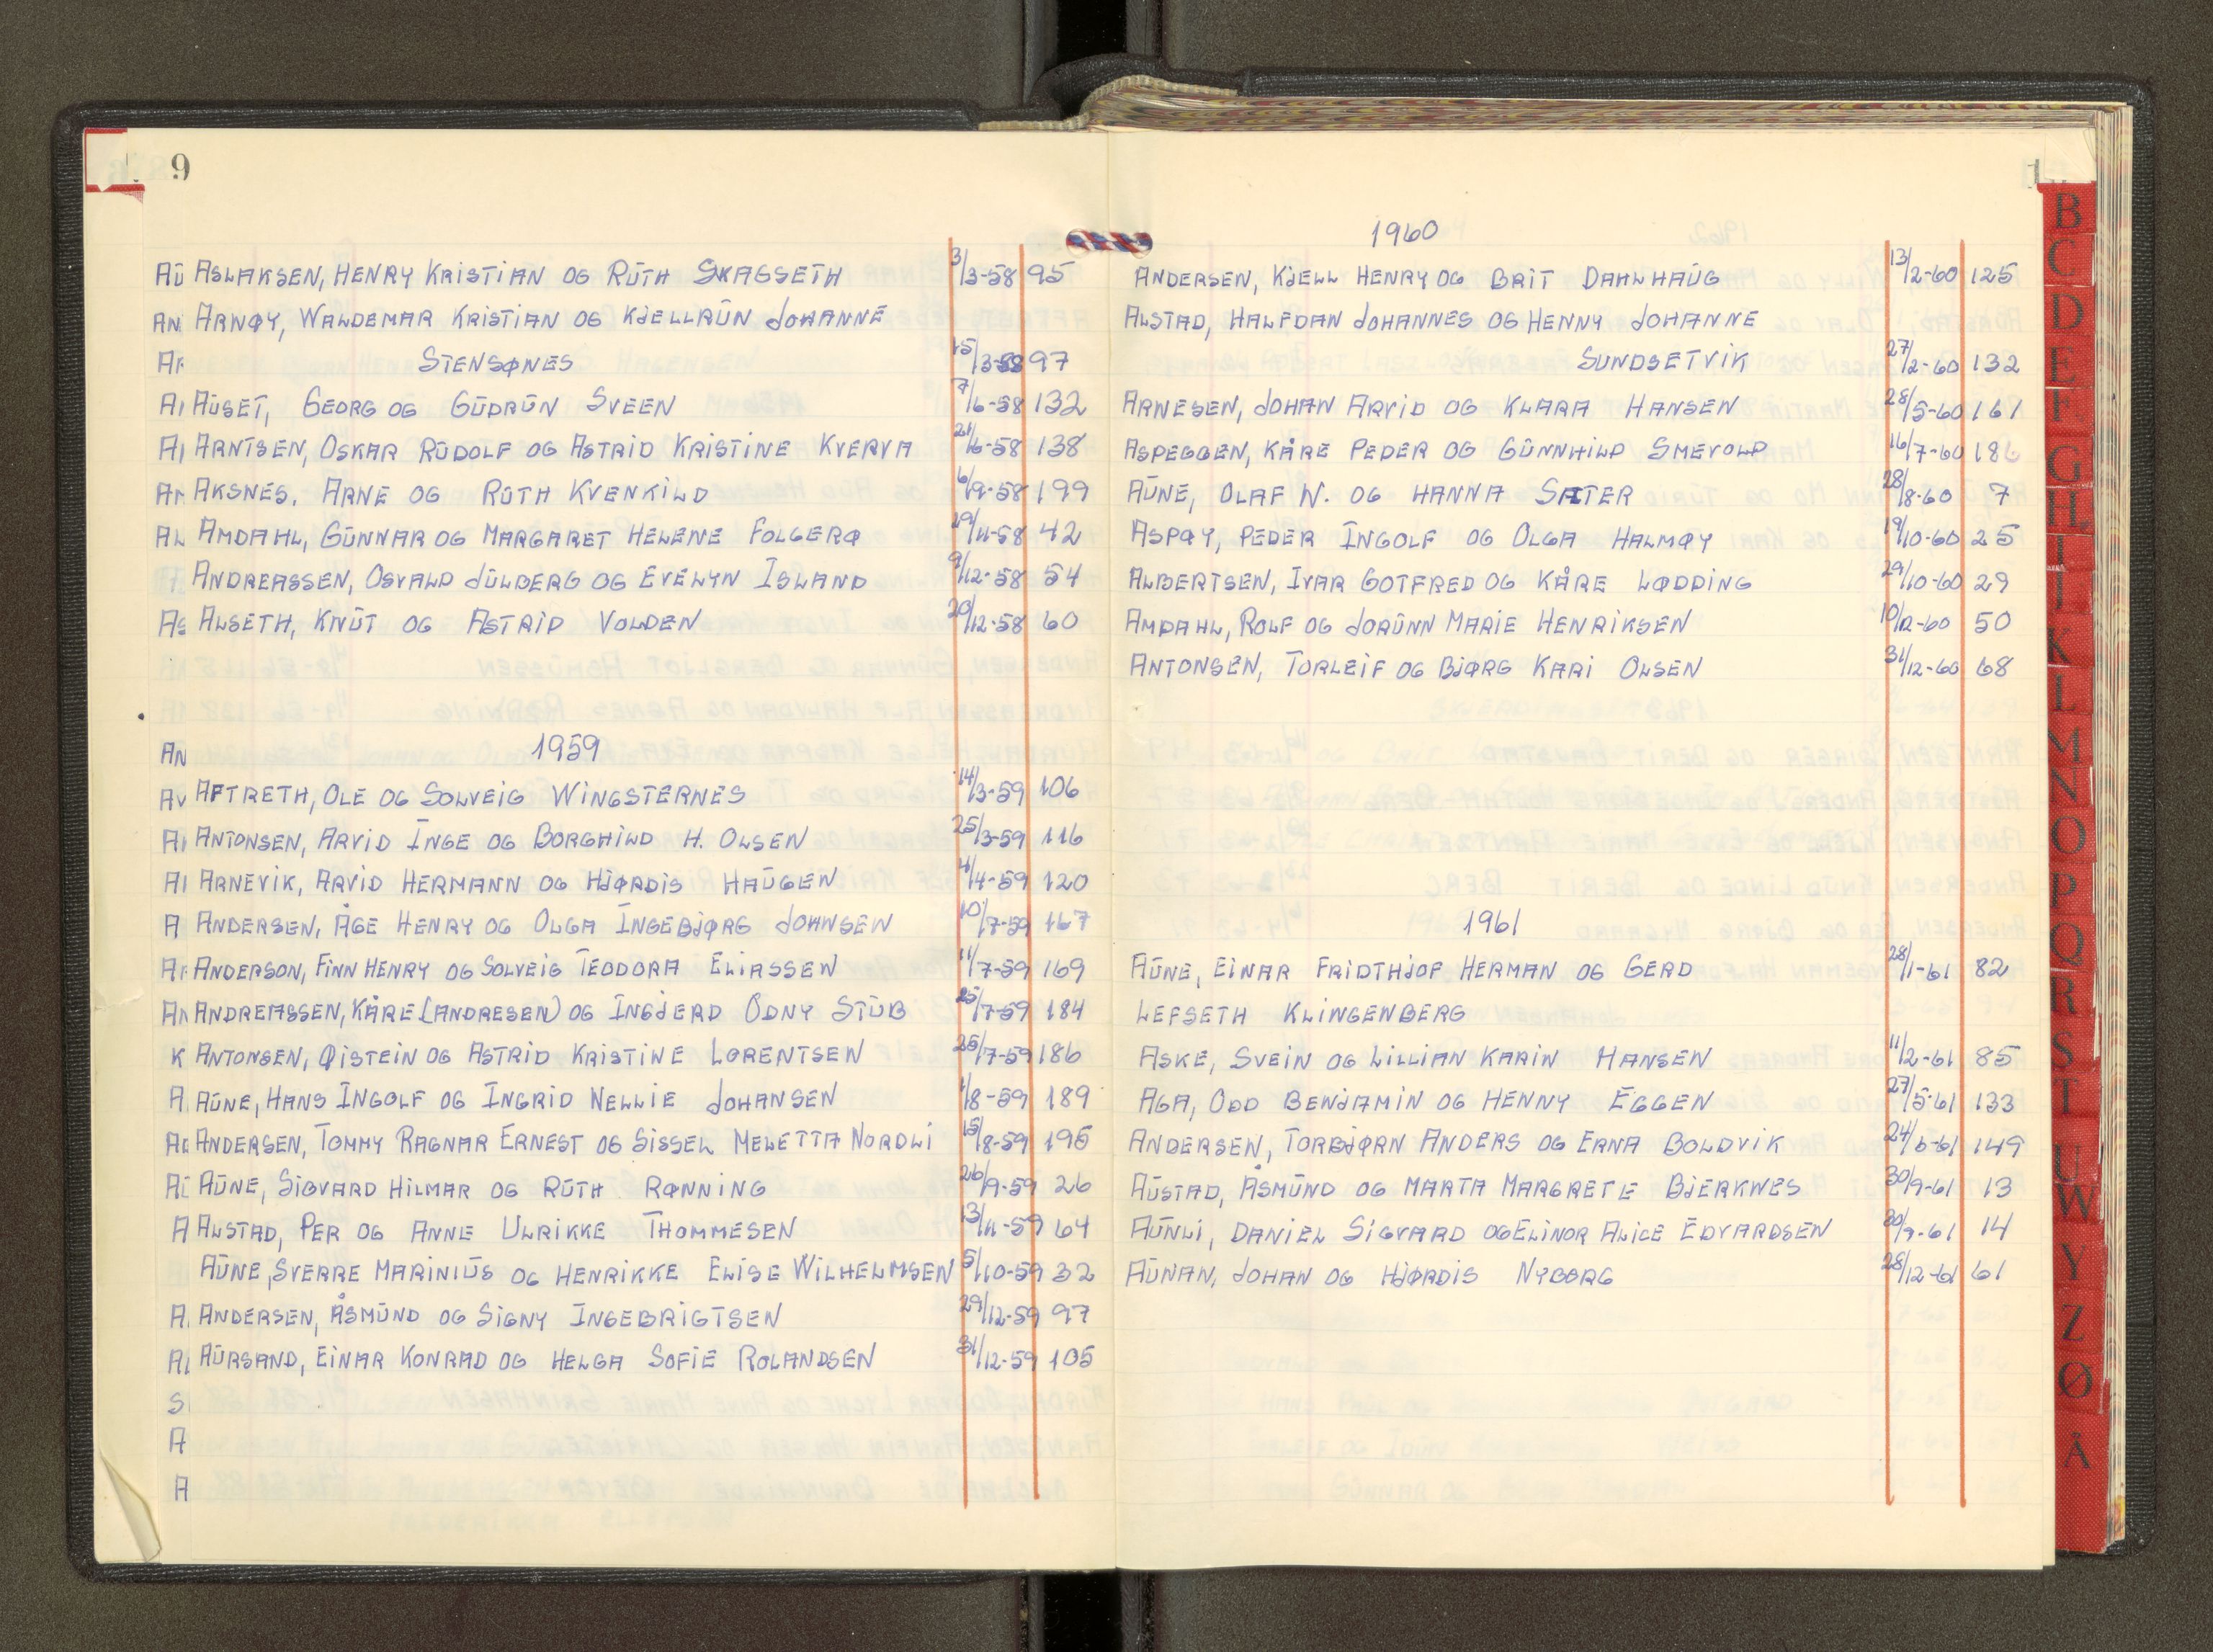 9
ASLAKSEN, HENRY KRISTIAN OG RŪTH SKAGSETH 3/3-58 95
ARNØY, WALDEMAR KRISTIAN OG KJELLRŪN JOHANNE
STENSØNES 15/3-58 97
AŪSET, GEORG OG GŪDRŪN SVEEN 7/6-58 132
ARNTSEN, OSKAR RŪDOLF OG ASTRID KRISTINE KVERVA 21/6-58 138
AKSNES. ARNE OG RŪTH KVENKILD 6/9-58 199
AMDAHL, GŪNNAR OG MARGARET HELENE FOLGERØ 29/11-58 42
ANDREASSEN, OSVALD JŪLBERG OG EVELYN ISLAND 9/12-58 54
ALSETH, KNŪT OG ASTRID VOLDEN 20/12-58 60
1959
AFTRETH, OLE OG SOLVEIG WINGSTERNES 14/3-59 106
ANTONSEN, ARVID INGE OG BORGHILD H. OLSEN 25/3-59 116
ARNEVIK, ARVID HERMANN OG HJØRDIS HAŪGEN 4/4-59 120
ANDERSEN, ÅGE HENRY OG OLGA INGEBJØRG JOHNSEN 10/7-59 167
ANDERSON, FINN HENRY OG SOLVEIG TEODORA ELIASSEN 11/7-59 169
ANDREASSEN, KÅRE (ANDRESEN) OG INGJERD ODNY STŪB 25/7-59 184
ANTONSEN, ØISTEIN OG ASTRID KRISTINE LORENTSEN 25/7-59 186
AŪNE, HANS INGOLF OG INGRID NELLIE JOHANSEN 1/8-59 189
ANDERSEN, TOMMY RAGNAR ERNEST OG SISSEL MELETTA NORDLI 15/8-59 195
AŪNE, SIGVARD HILMAR OG RŪTH RØNNING 26/9-59 26
ALSTAD, PER OG ANNE ULRIKKE THOMMESEN 13/11-59 64
AŪNE, SVERRE MARINIŪS OG HENRIKKE ELISE WILHELMSEN 5/10-59 32
ANDERSEN, ÅSMŪND OG SIGNY INGEBRIGTSEN 29/12-59 97
AŪRSAND, EINAR KONRAD OG HELGA SOFIE ROLANDSEN 31/12-59 105
1960
ANDERSEN, KJELL HENRY OG BRIT DAHLHAŪG 13/2-60 125
ALSTAD, HALFDAN JOHANNES OG HENNY JOHANNE
SUNDSETVIK 27/2-60 132
ARNESEN, JOHAN ARVID OG KLARA HANSEN 28/5-60 161
ASPEGGEN, KÅRE PEDER OG GŪNNHILD SMEVOLD 16/7-60 186
AŪNE, OLAF N. OG HANNA SÆTER 28/8-60 7
ASPØY, PEDER INGOLF OG OLGA HALMØY 19/10-60 25
ALBERTSEN, IVAR GOTFRED OG KÅRE LØDDING 29/10-60 29
AMDAHL, ROLF OG JORŪNN MARIE HENRIKSEN 10/12-60 50
ANTONSEN, TORLEIF OG BJØRG KARI OLSEN 31/12-60 68
1961
AŪNE, EINAR FRIDTHJOF HERMAN OG GERD 28/1-61 82
LEFSETH KLINGENBERG
ASKE, SVEIN OG LILLIAN KARIN HANSEN 11/2-61 85
AGA, ODD BENJAMIN OG HENNY EGGEN 27/5-61 133
ANDERSEN, TORBJØRN ANDERS OG ERNA BOLDVIK 24/6-61 149
AŪSTAD, ÅSMŪND OG MARTA MARGRETE BJERKNES 30/9-61 13
AŪNLI, DANIEL SIGVARD OG ELINOR ALICE EDVARDSEN 30/9-61 14
AŪNAN, JOHAN OG HJØRDIS NYBORG 28/12-61 61
B
C
D
E
F
G
H
I
J
K
L
M
N
O
P
Q
R
S
T
U
W
Y
Z
Ø
Å